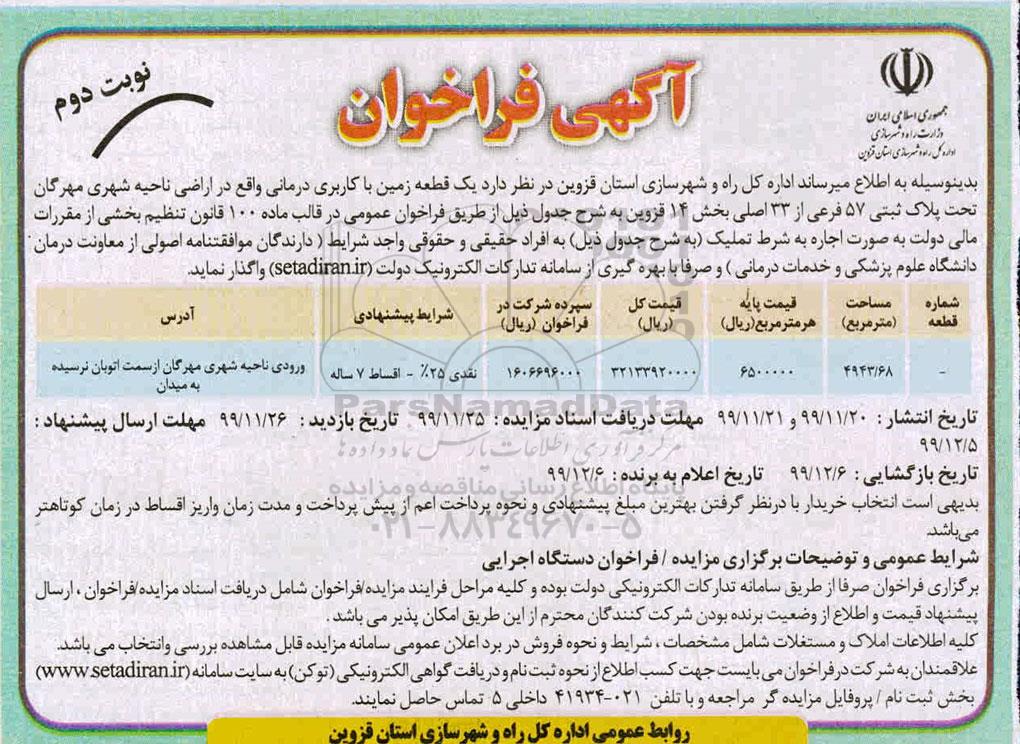 جمهوری اسلامی ایران
وزارت راه و شهرسازی
اداره کل راه و شهرسازی استان قزوین
آگهی فراخوان
نوبت دوم
بدینوسیله به اطلاع میرساند اداره کل راه و شهرسازی استان قزوین در نظر دارد یک قطعه زمین با کاربری درمانی واقع در اراضی ناحیه شهری مهرگان
تحت پلاک ثبتی ۵۷ فرعی از ۳۳ اصلی بخش ۱۴ قزوین به شرح جدول ذیل از طریق فراخوان عمومی در قالب ماده ۱۰۰ قانون تنظیم بخشی از مقررات
مالی دولت به صورت اجاره به شرط تملیک (به شرح جدول ذیل) به افراد حقیقی و حقوقی واجد شرایط ( دارندگان موافقتنامه اصولی از معاونت درمان
دانشگاه علوم پزشکی و خدمات درمانی ) و صرفا با بهره گیری از سامانه تدارکات الکترونیک دولت (setadiran.ir) واگذار نماید.
شماره قطعه | مساحت (مترمربع) | قیمت پایه هرمترمربع(ریال) | قیمت کل (ریال) | سپرده شرکت در فراخوان (ریال) | شرایط پیشنهادی | آدرس
- | ۴۹۴۳/۶۸ | ۶۵۰۰۰۰۰ | ۳۲۱۳۳۹۲۰۰۰۰ | ۱۶۰۶۶۹۶۰۰۰ | نقدی ۲۵٪ - اقساط ۷ ساله | ورودی ناحیه شهری مهرگان ازسمت اتوبان نرسیده به میدان
تاریخ انتشار : ۹۹/۱۱/۲۰ و ۹۹/۱۱/۲۱ مهلت دریافت اسناد مزایده : ۹۹/۱۱/۲۵ تاریخ بازدید : ۹۹/۱۱/۲۶ مهلت ارسال پیشنهاد :
۹۹/۱۲/۵
تاریخ بازگشایی : ۹۹/۱۲/۶ تاریخ اعلام به برنده : ۹۹/۱۲/۶
بدیهی است انتخاب خریدار با درنظر گرفتن بهترین مبلغ پیشنهادی و نحوه پرداخت اعم از پیش پرداخت و مدت زمان واریز اقساط در زمان کوتاهتر
می‌باشد.
شرایط عمومی و توضیحات برگزاری مزایده / فراخوان دستگاه اجرایی
برگزاری فراخوان صرفا از طریق سامانه تدارکات الکترونیکی دولت بوده و کلیه مراحل فرایند مزایده/فراخوان شامل دریافت اسناد مزایده/فراخوان ، ارسال
پیشنهاد قیمت و اطلاع از وضعیت برنده بودن شرکت کنندگان محترم از این طریق امکان پذیر می باشد .
کلیه اطلاعات املاک و مستغلات شامل مشخصات ، شرایط و نحوه فروش در برد اعلان عمومی سامانه مزایده قابل مشاهده بررسی وانتخاب می باشد.
علاقمندان به شرکت در فراخوان می بایست جهت کسب اطلاع از نحوه ثبت نام و دریافت گواهی الکترونیکی (توکن) به سایت سامانه (www.setadiran.ir)
بخش ثبت نام / پروفایل مزایده گر مراجعه و با تلفن ۰۲۱-۴۱۹۳۴ داخلی ۵ تماس حاصل نمایند.
روابط عمومی اداره کل راه و شهرسازی استان قزوین
ParsNamadData
مرکز فرآوری اطلاعات پارس نماد داده ها
پایگاه اطلاع رسانی مناقصه و مزایده
۰۲۱-۸۸۳۴۹۶۷۰-۵